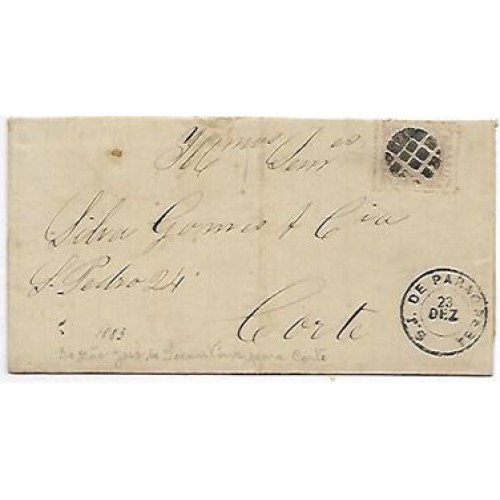 Senres
Silva Gomes & Cia
S. Pedro 24
Corte
S.J. DE
23
DEZ
1883
De São José do para Corte